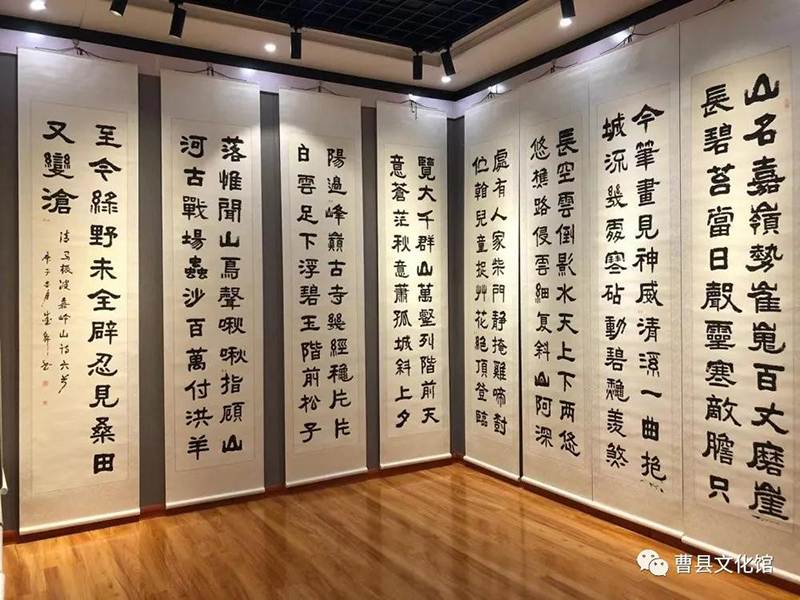 山名嘉嶺勢崔嵬百丈磨崖
長碧苔當日聲靈寒敵膽只
今筆畫見神威清溪一曲抱
城流幾處寒砧動碧穐羨煞
長空雲倒影水天上下兩悠
悠樵路侵雲細复斜山阿深
處有人家柴門靜掩雞啼對
客翰兒童捉艸花絶頂登臨
覽大千群山萬壑列階前天
意蒼茫秋意蕭孤城斜上夕
陽邊峰巔古寺幾經穐片片
白雲足下浮碧玉階前松子
落惟聞山鳥聲啾啾指顧山
河古戰場蟲沙百萬付洪羊
至今綠野未全辟忍見桑田
又變滄
曹县文化馆